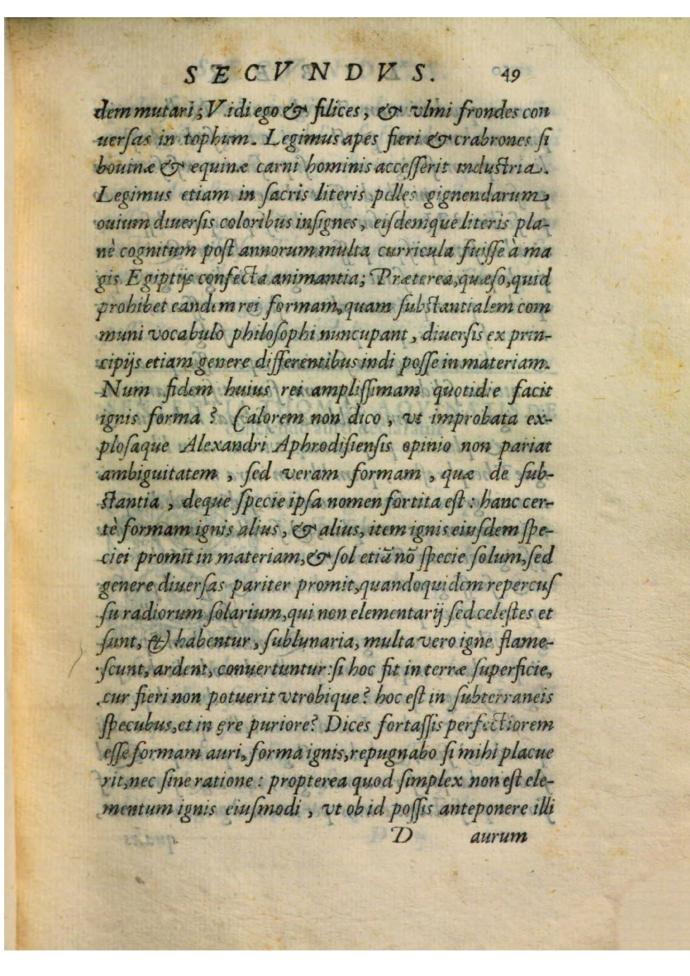 SECVNDVS. 49
dem mutari; Vidi ego & filices, & vlmi frondes con
uersas in tophum. Legimus apes fieri & crabrones si
bouinæ & equinæ carni hominis accesserit industria.
Legimus etiam in sacris literis pelles gignendarum
ouium diuersis coloribus insignes, eisdemque literis pla-
nè cognitum post annorum multa curricula fuisse à ma
gis Egiptijs confecta animantia; Præterea, quæso, quid
prohibet eandem rei formam, quam substantialem com
muni vocabulo philosophi nuncupant, diuersis ex prin-
cipijs etiam genere differentibus indi posse in materiam.
Num fidem huius rei amplissimam quotidie facit
ignis forma? Calorem non dico, vt improbata ex-
plosaque Alexandri Aphrodisiensis opinio non pariat
ambiguitatem, sed veram formam, quæ de sub-
stantia, deque specie ipsa nomen sortita est: hanc cer-
tè formam ignis alius, & alius, item ignis eiusdem spe-
ciei promit in materiam, & sol etiā nō specie solum, sed
genere diuersas pariter promit, quandoquidem repercus
su radiorum solarium, qui non elementarij sed celestes et
sunt, & habentur, sublunaria, multa vero igne flame-
scunt, ardent, conuertuntur: si hoc fit in terræ superficie,
cur fieri non potuerit vtrobique? hoc est in subterraneis
specubus, et in ęre puriore? Dices fortassis perfectiorem
esse formam auri, forma ignis, repugnabo si mihi placue
rit, nec sine ratione: propterea quod simplex non est ele-
mentum ignis eiusmodi, vt ob id possis anteponere illi
D aurum